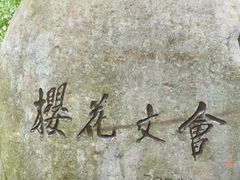 櫻花文會